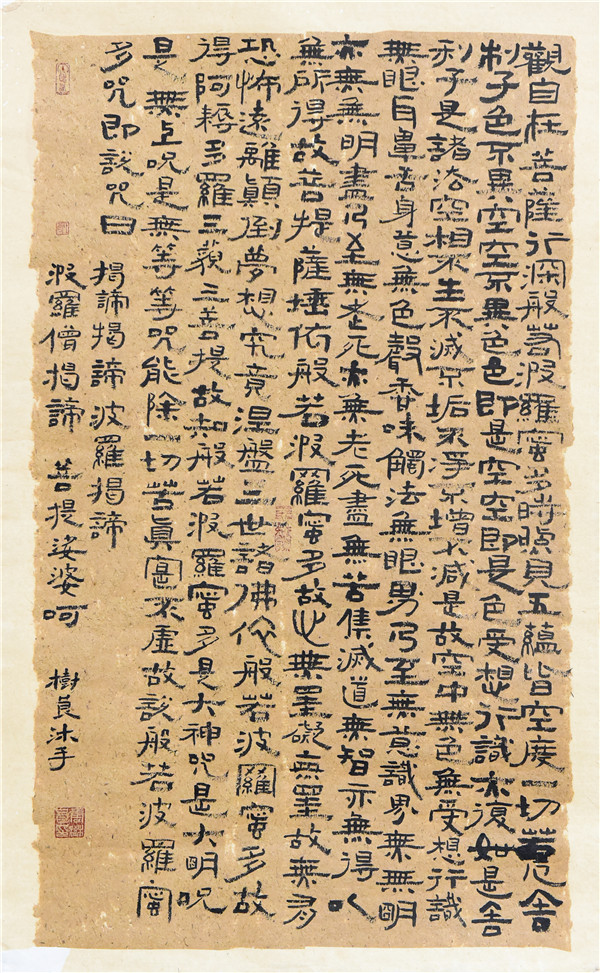 觀自在菩薩行深般若波羅蜜多時照見五蘊皆空度一切苦厄舍
利子色不異空空不異色色即是空空即是色受想行識亦復如是舍
利子是諸法空相不生不滅不垢不淨不增不減是故空中無色無受想行識
無眼耳鼻舌身意無色聲香味觸法無眼界乃至無意識界無無明
亦無無明盡乃至無老死亦無老死盡無苦集滅道無智亦無得以
無所得故菩提薩埵依般若波羅蜜多故心無罣礙無罣故無有
恐怖遠離顛倒夢想究竟涅盤三世諸佛依般若波羅蜜多故
得阿耨多羅三藐三菩提故知般若波羅蜜多是大神咒是大明咒
是無上咒是無等等咒能除一切苦真實不虛故說般若波羅蜜
多咒即說咒曰
揭諦揭諦波羅揭諦
波羅僧揭諦 菩提娑婆呵 樹良沐手